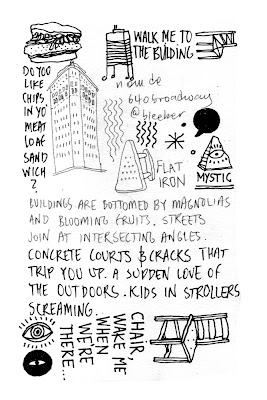 WALK ME TO
THE BUILDING
DO YOU
LIKE
CHIPS
IN YO
MEAT
LOAF
SAND
WICH
?
640 broadway
@bleeker
FLAT
IRON
MYSTIC
BUILDINGS ARE BOTTOMED BY MAGNOLIAS
AND BLOOMING FRUITS. STREETS
JOIN AT INTERSECTING ANGLES.
CONCRETE COURTS & CRACKS THAT
TRIP YOU UP. A SUDDEN LOVE OF
THE OUTDOORS. KIDS IN STROLLERS
SCREAMING.
CHAIR,
WAKE ME
WHEN
WE'RE
THERE...